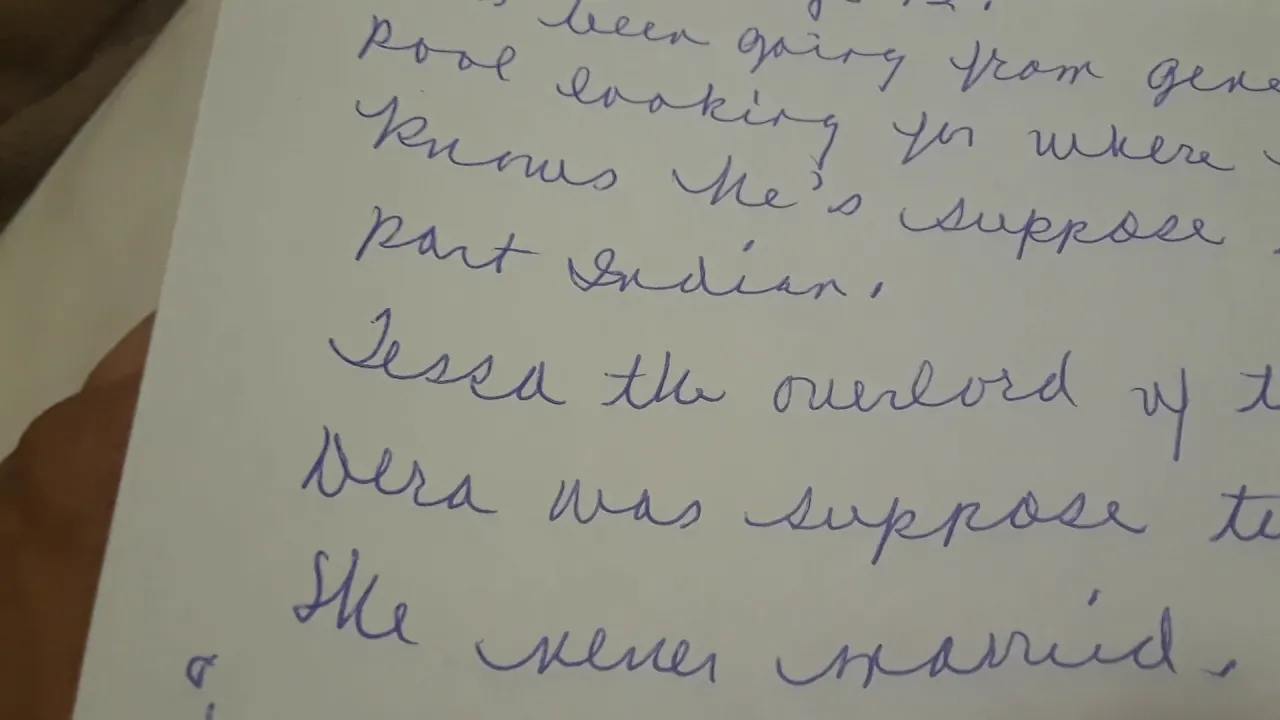 been going from gene
pool looking for where
knows he's suppose
part Indian.
Tessa the overlord of t
Vera was suppose to
She never married.